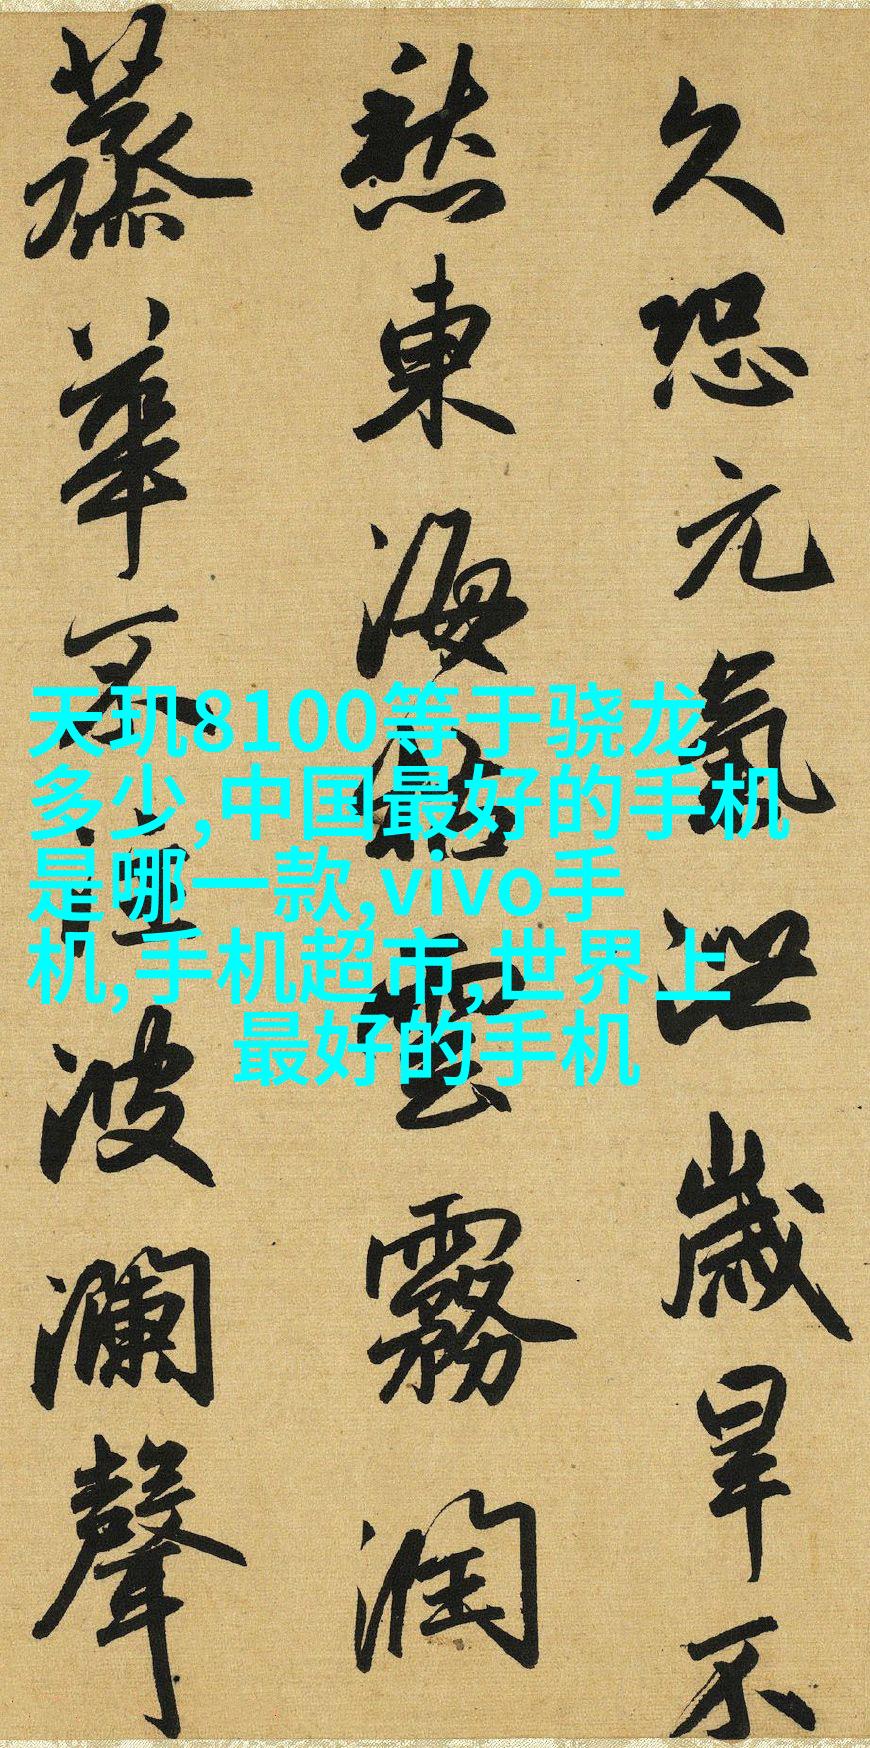 久恐元氣泄歲旱不
愁東海枯雲霧潤
蒸華不注波瀾聲
天玑8100等于骁龙
多少,中国最好的手机
是哪一款,vivo手
机,手机超市,世界上
最好的手机